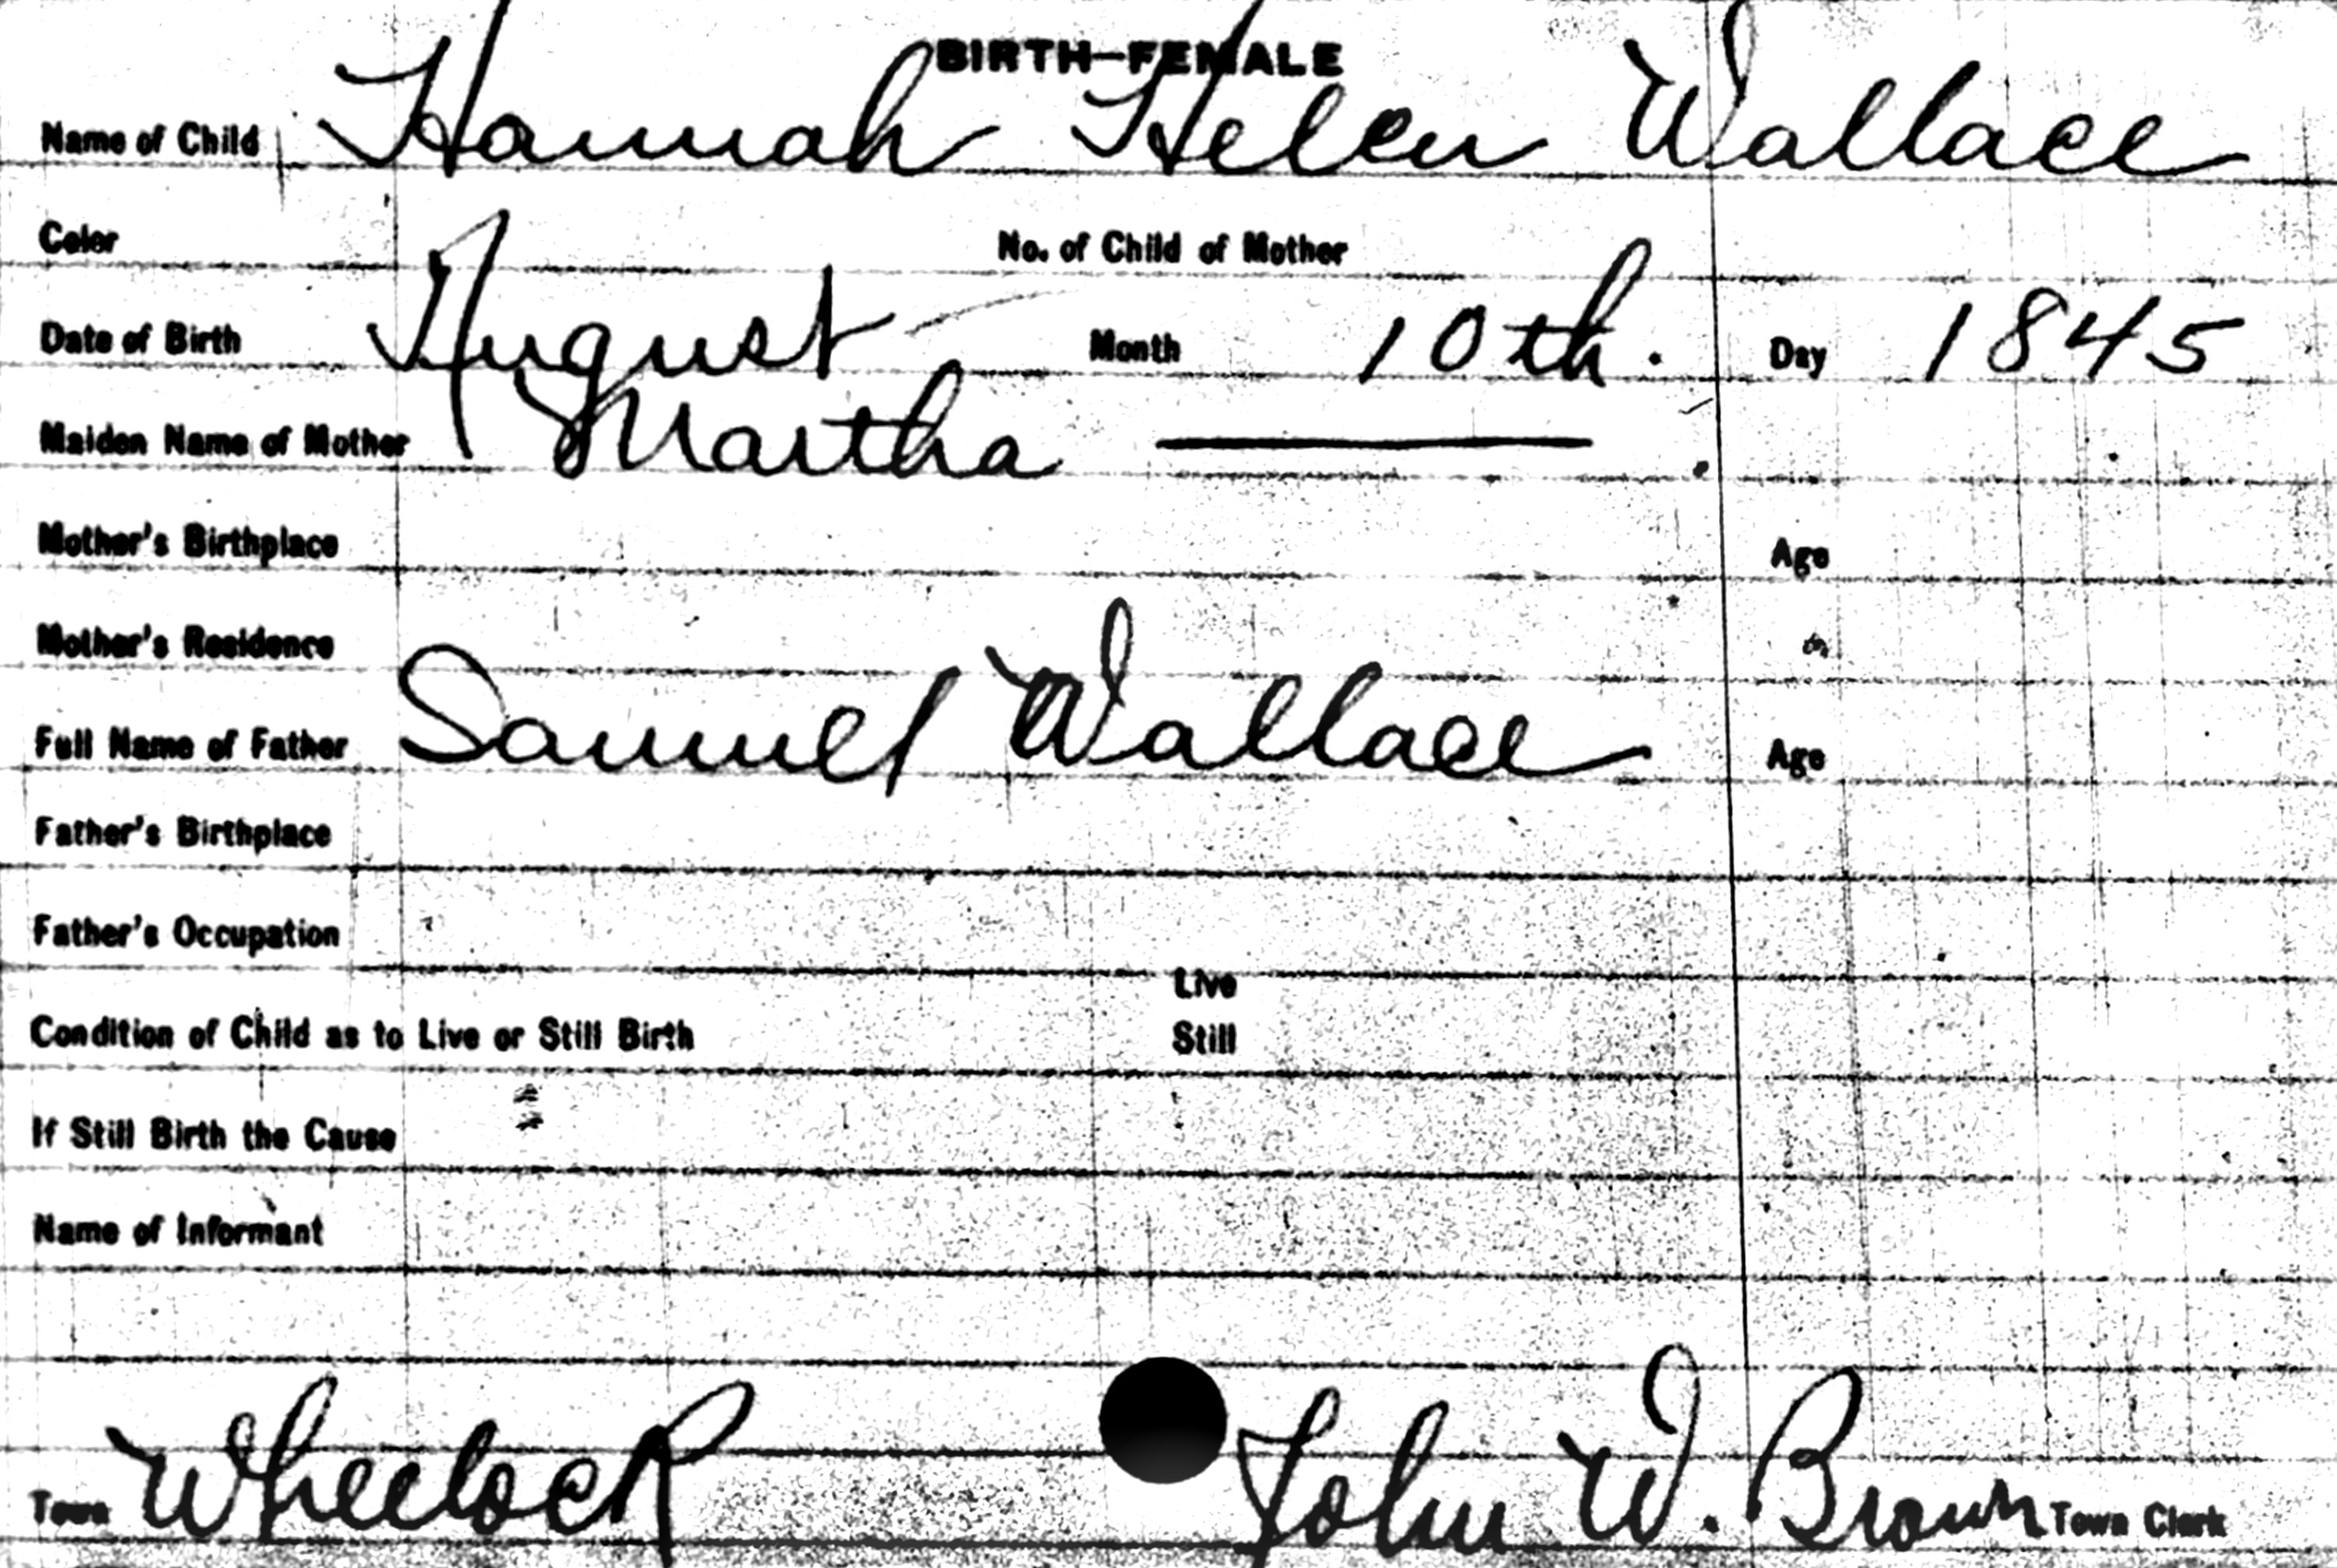 BIRTH—FEMALE
Name of Child Hannah Helen Wallace
Color No. of Child of Mother
Date of Birth August Month 10th. Day 1845
Maiden Name of Mother Martha ———
Mother's Birthplace Age
Mother's Residence
Full Name of Father Samuel Wallace Age
Father's Birthplace
Father's Occupation
Live
Condition of Child as to Live or Still Birth Still
If Still Birth the Cause
Name of Informant
Town Wheelock John W. Brown Town Clerk